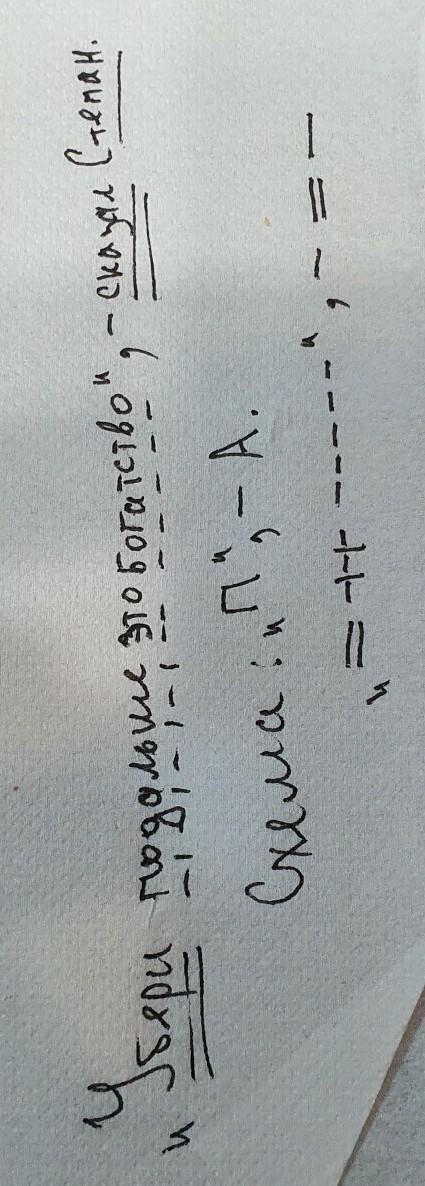 „Убери подальше это богатство“, – сказал Степан.
Схема: „П“, – А.
„= ++ ------“, – = –